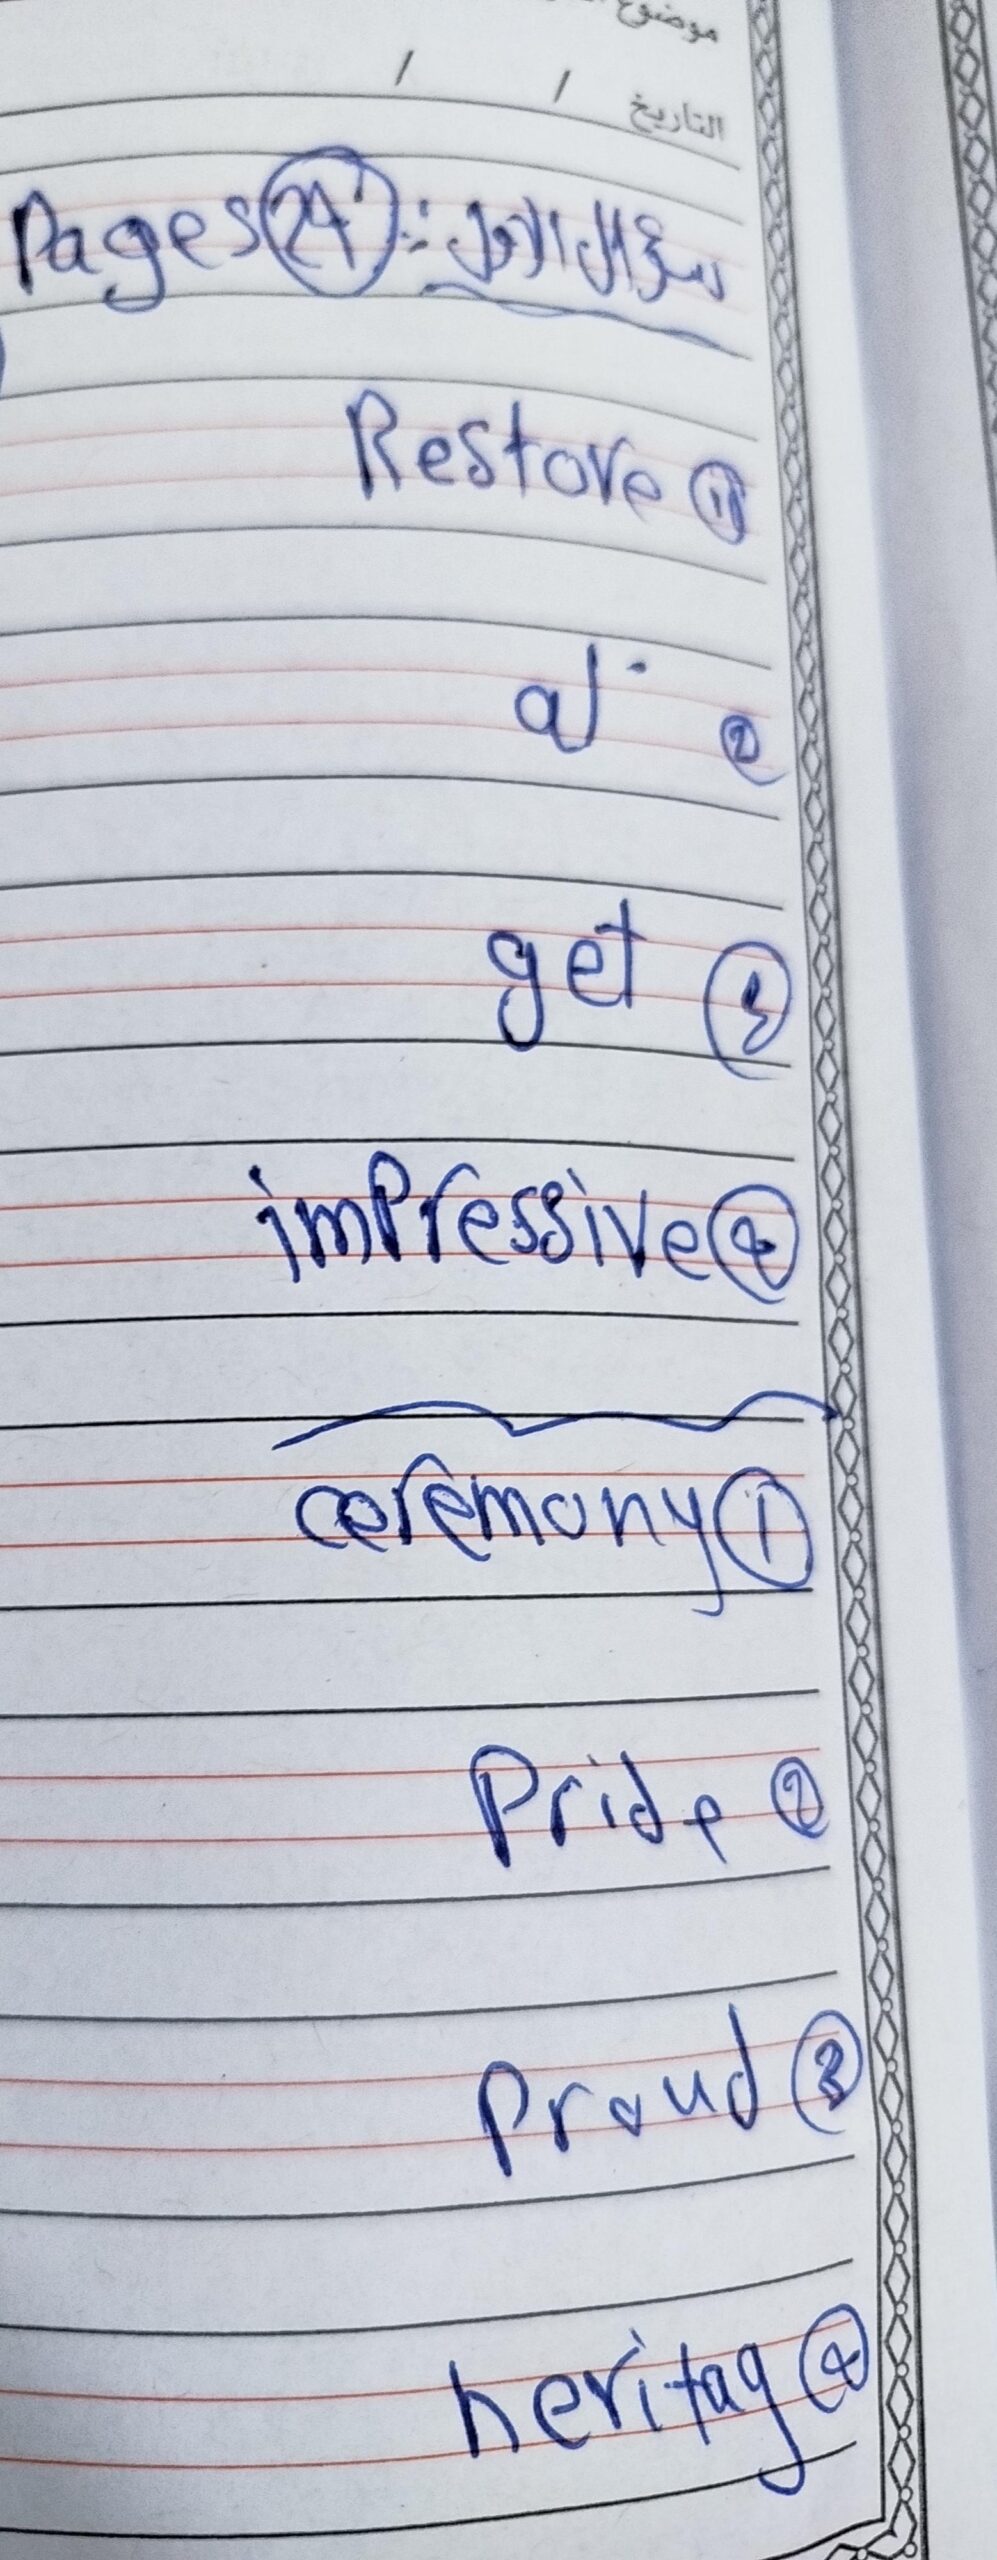 موضوع
التاريخ / /
Pages (24) : سؤال الاول
Restore ①
②
get ③
impressive ④
ceremony ①
Pride ②
proud ③
heritag ④